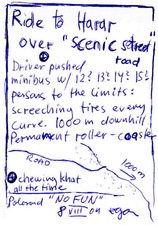 Ride to Harar
over "scenic
road
Driver pushed
minibus w/ 12? 13? 14? 15?
persons to the limits:
screeching tires every
curve. 1000 m downhill
Permanent roller-coaster
ROAD
1000m
chewing khat
all the time
"NO FUN"
8 VIII on